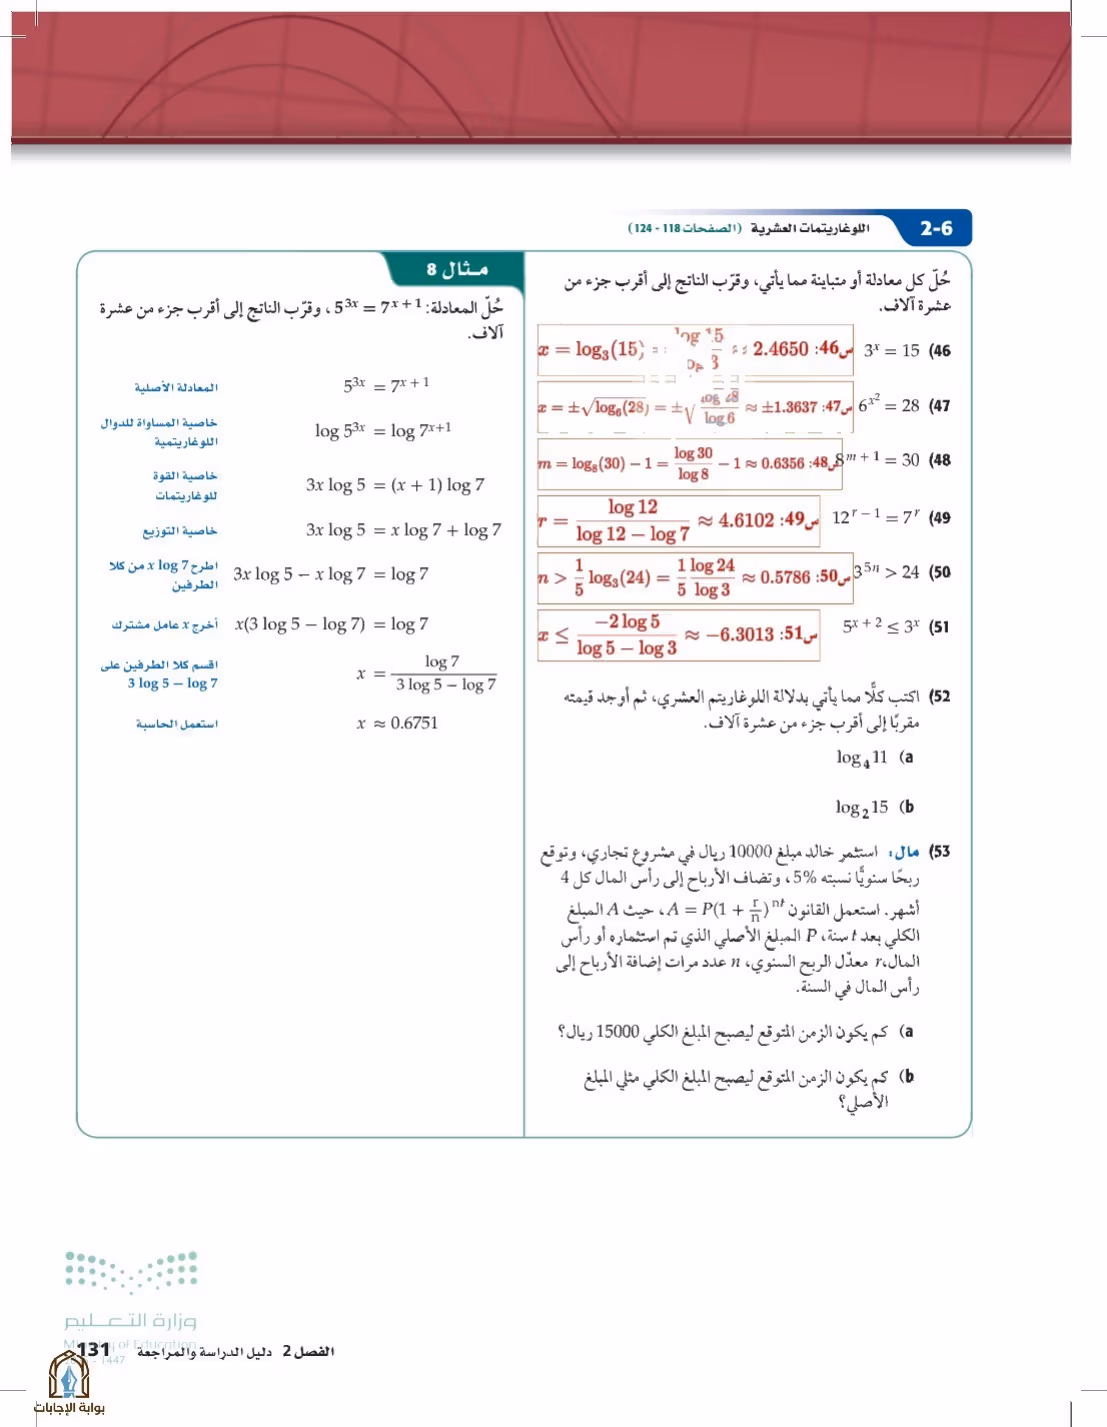 2-6 اللوغاريتمات العشرية (الصفحات 118 - 124)
حُلّ كل معادلة أو متباينة مما يأتي، وقرّب الناتج إلى أقرب جزء من
عشرة آلاف.
46) 3^x = 15
س46: x = log₃(15) ≈ 2.4650
47) 6^{x²} = 28
س47: x = ±√log₆(28) = ±√(log 28 / log 6) ≈ ±1.3637
48) 8^{m + 1} = 30
س48: m = log₈(30) − 1 = log 30 / log 8 − 1 ≈ 0.6356
49) 12^{r − 1} = 7^r
س49: r = log 12 / (log 12 − log 7) ≈ 4.6102
50) 3^{5n} > 24
س50: n > 1/5 log₃(24) = 1/5 log 24 / log 3 ≈ 0.5786
51) 5^{x + 2} ≤ 3^x
س51: x ≤ −2 log 5 / (log 5 − log 3) ≈ −6.3013
52) اكتب كلًّا مما يأتي بدلالة اللوغاريتم العشري، ثم أوجد قيمته
مقربًا إلى أقرب جزء من عشرة آلاف.
a) log₄ 11
b) log₂ 15
53) مال: استثمر خالد مبلغ 10000 ريال في مشروع تجاري، وتوقع
ربحًا سنويًّا نسبته 5%، وتضاف الأرباح إلى رأس المال كل 4
أشهر. استعمل القانون A = P(1 + r/n)^{nt}، حيث A المبلغ
الكلي بعد t سنة، P المبلغ الأصلي الذي تم استثماره أو رأس
المال، r معدّل الربح السنوي، n عدد مرات إضافة الأرباح إلى
رأس المال في السنة.
a) كم يكون الزمن المتوقع ليصبح المبلغ الكلي 15000 ريال؟
b) كم يكون الزمن المتوقع ليصبح المبلغ الكلي مثلي المبلغ
الأصلي؟
مثال 8
حُلّ المعادلة: 5^{3x} = 7^{x + 1}، وقرّب الناتج إلى أقرب جزء من عشرة
آلاف.
5^{3x} = 7^{x + 1} المعادلة الأصلية
log 5^{3x} = log 7^{x+1} خاصية المساواة للدوال
اللوغاريتمية
3x log 5 = (x + 1) log 7 خاصية القوة
للوغاريتمات
3x log 5 = x log 7 + log 7 خاصية التوزيع
3x log 5 − x log 7 = log 7 اطرح x log 7 من كلا
الطرفين
x(3 log 5 − log 7) = log 7 أخرج x عامل مشترك
x = log 7 / (3 log 5 − log 7) اقسم كلا الطرفين على
3 log 5 − log 7
x ≈ 0.6751 استعمل الحاسبة
وزارة التعليم
Ministry of Education
1447
الفصل 2 دليل الدراسة والمراجعة 131
بوابة الإجابات